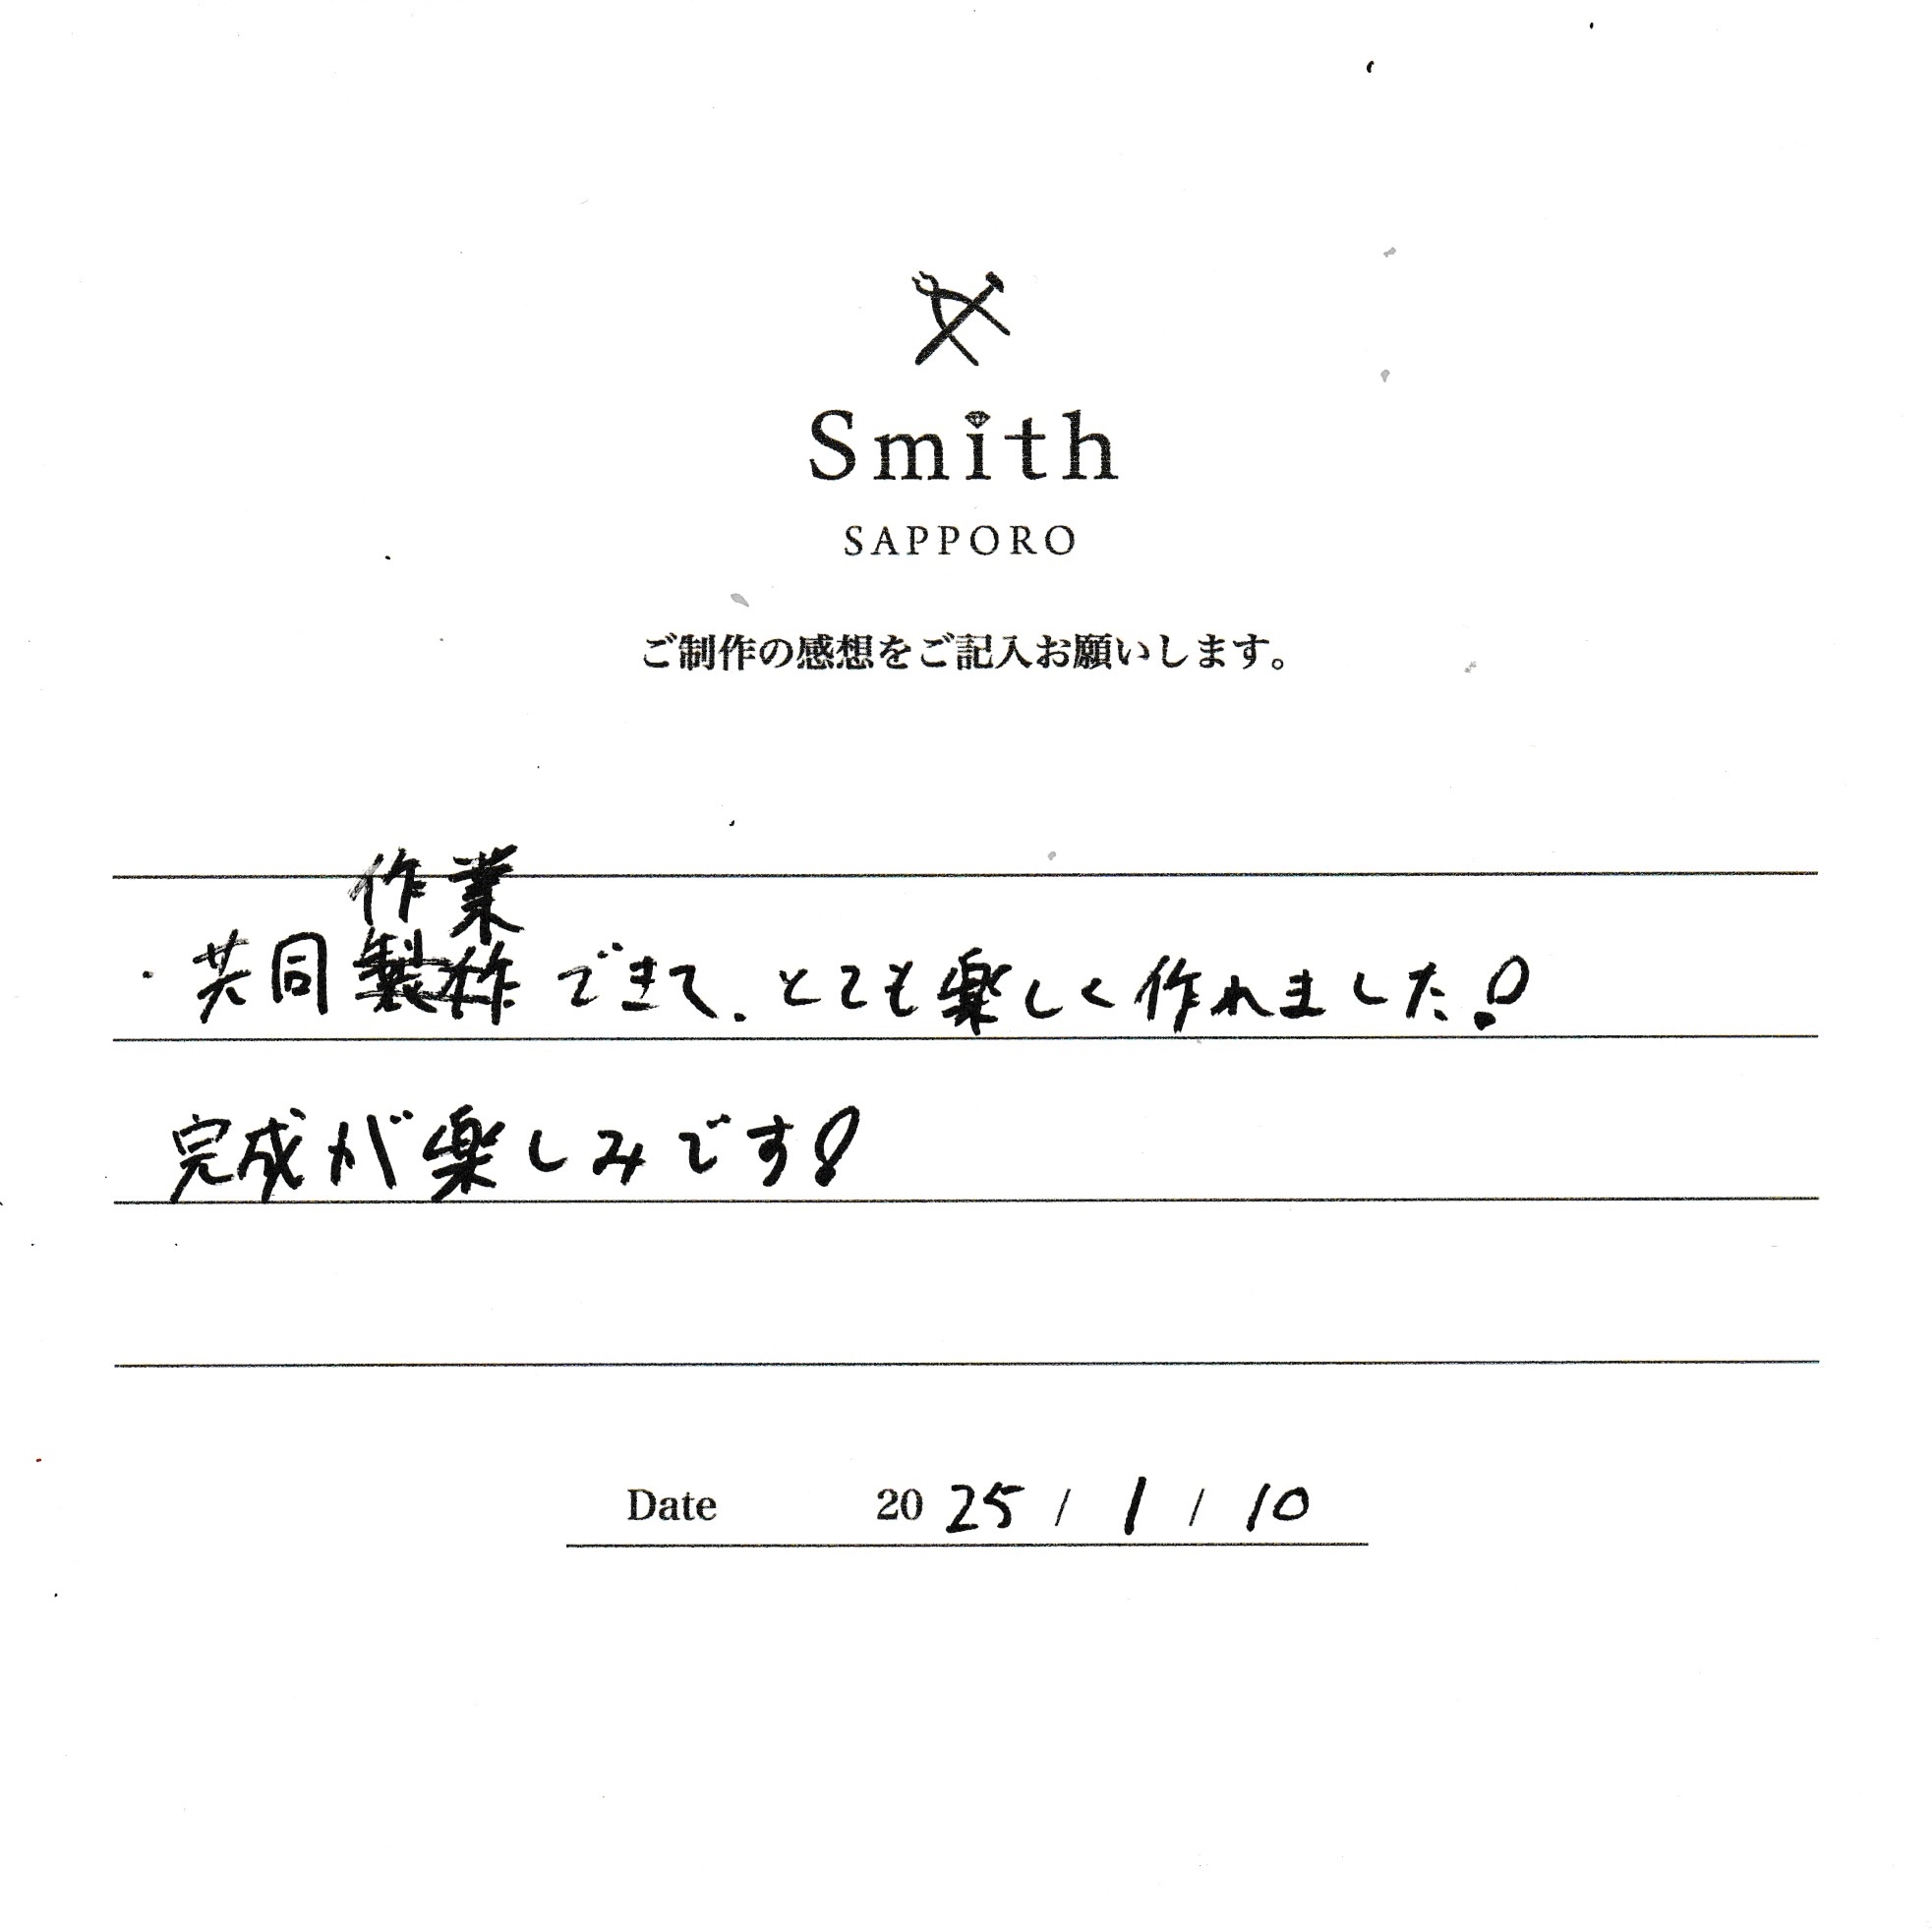 Smith
SAPPORO
ご制作の感想をご記入お願いします。
作業
・共同製作できて、とても楽しく作れました!
完成が楽しみです!
Date 2025 / 1 / 10